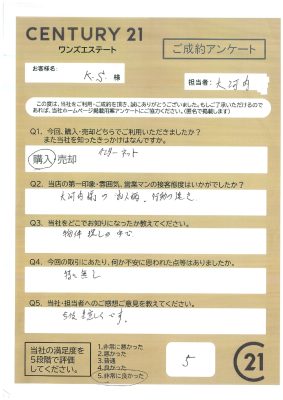 CENTURY 21
ワンズエステート
ご成約アンケート
お客様名:
K.S. 様
担当者: 大河内
この度は、当社をご利用・ご成約を頂き、誠にありがとうございました。もしご了承いただけるのであれば、当社ホームページ掲載用アンケートにご協力ください。(匿名で掲載します)
Q1. 今回、購入・売却どちらでご利用いただきましたか?
また当社を知ったきっかけはなんですか。
インターネット
購入・売却
Q2. 当店の第一印象・雰囲気、営業マンの接客態度はいかがでしたか?
大河内様の お人柄、行動の速さ
Q3. 当社をどこでお知りになったか教えてください。
物件探しの中で
Q4. 今回の取引にあたり、何か不安に思われた点等はありましたか。
特に無し
Q5. 当社・担当者へのご感想ご意見を教えてください。
です。
当社の満足度を
5段階で評価
してください。
1.非常に悪かった
2.悪かった
3.普通
4.良かった
5.非常に良かった
5
C21